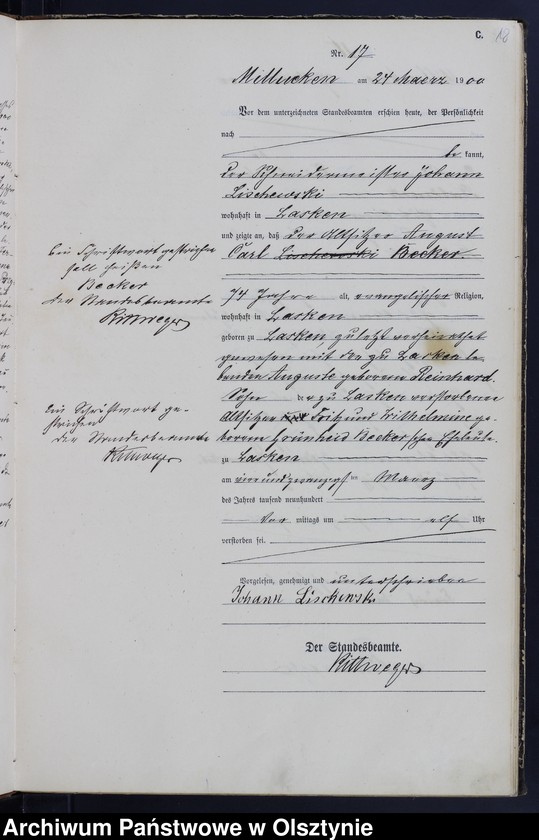 C.
18
Nr. 17
Mittucken am 24 Maerz 1900
Vor dem unterzeichneten Standesbeamten erschien heute, der Persönlichkeit
nach
be kannt,
der Schneidermeister Johann
Lischewski
wohnhaft in Lasken
und zeigte an, daß der Altsitzer August
Carl Lischewski Becker
74 Jahre alt, evangelischer Religion,
wohnhaft in Lasken
geboren zu Lasken zuletzt verheirathet
gewesen mit der zu Lasken le-
benden Auguste geborenen Reinhard
Sohn der zu Lasken verstorbenen
Altsitzer Fritz und Wilhelmine ge-
borenen Grünheid Becker'schen Eheleute
zu Lasken
am vierundzwanzigsten Maerz
des Jahres tausend neunhundert
Vor mittags um elf Uhr
verstorben sei.
Vorgelesen, genehmigt und unterschrieben
Johann Lischewski
Der Standesbeamte.
Rittweger
Ein Schriftwort gestrichen
soll heißen
Becker
der Standesbeamte
Rittweger
Ein Schriftwort ge-
strichen
der Standesbeamte
Rittweger
Archiwum Państwowe w Olsztynie